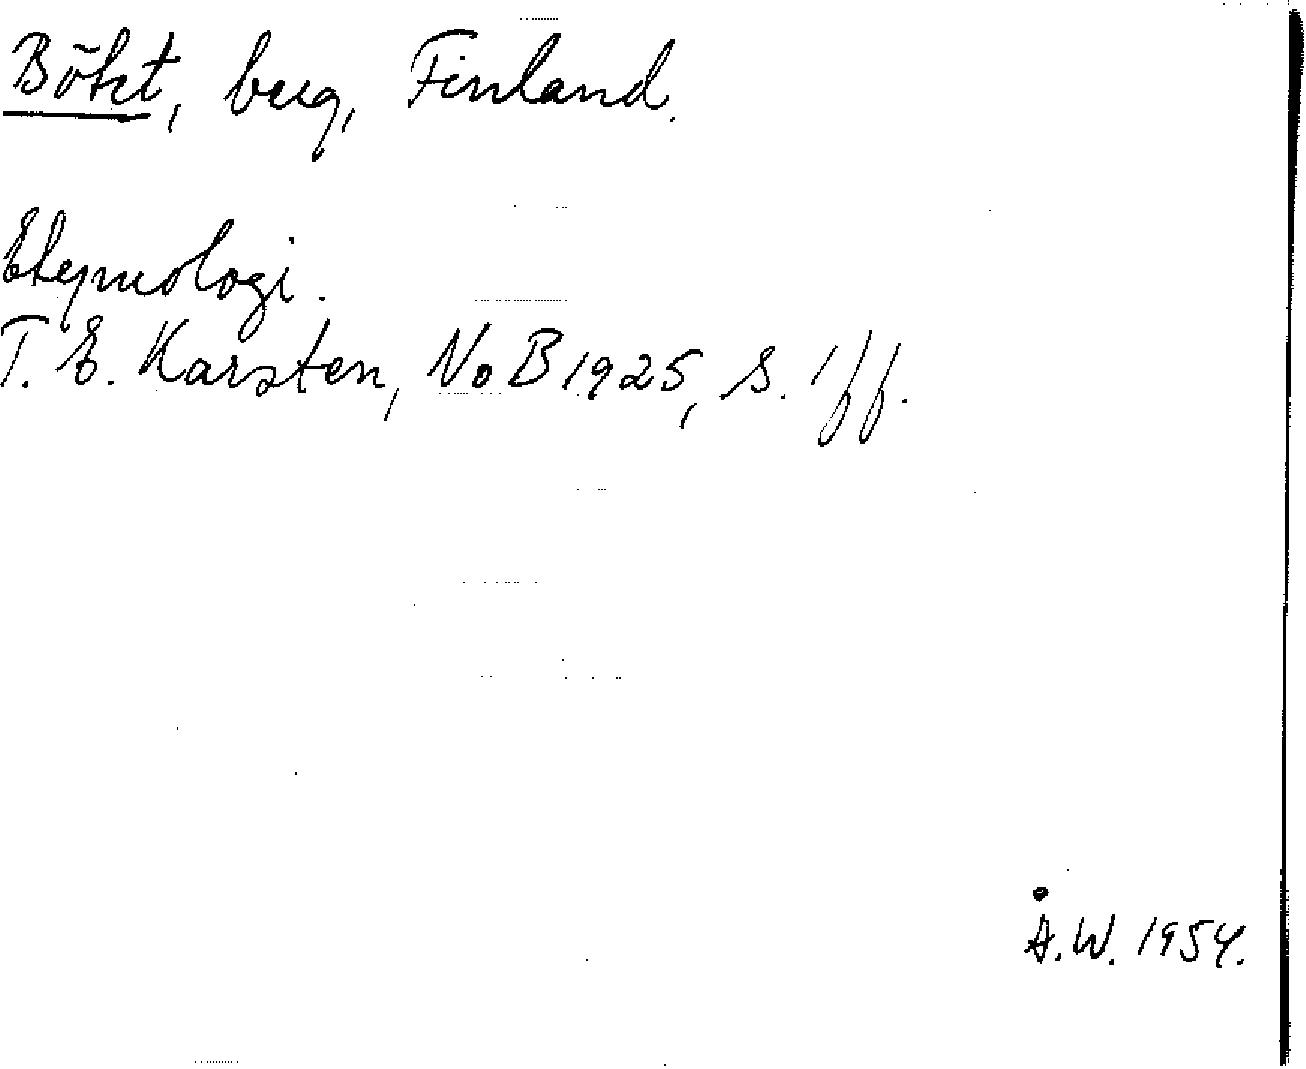 Bökt, berg, Finland.
Etymologi.
T. E. Karsten, NoB 1925, s. 1 ff.
Å.W. 1954.